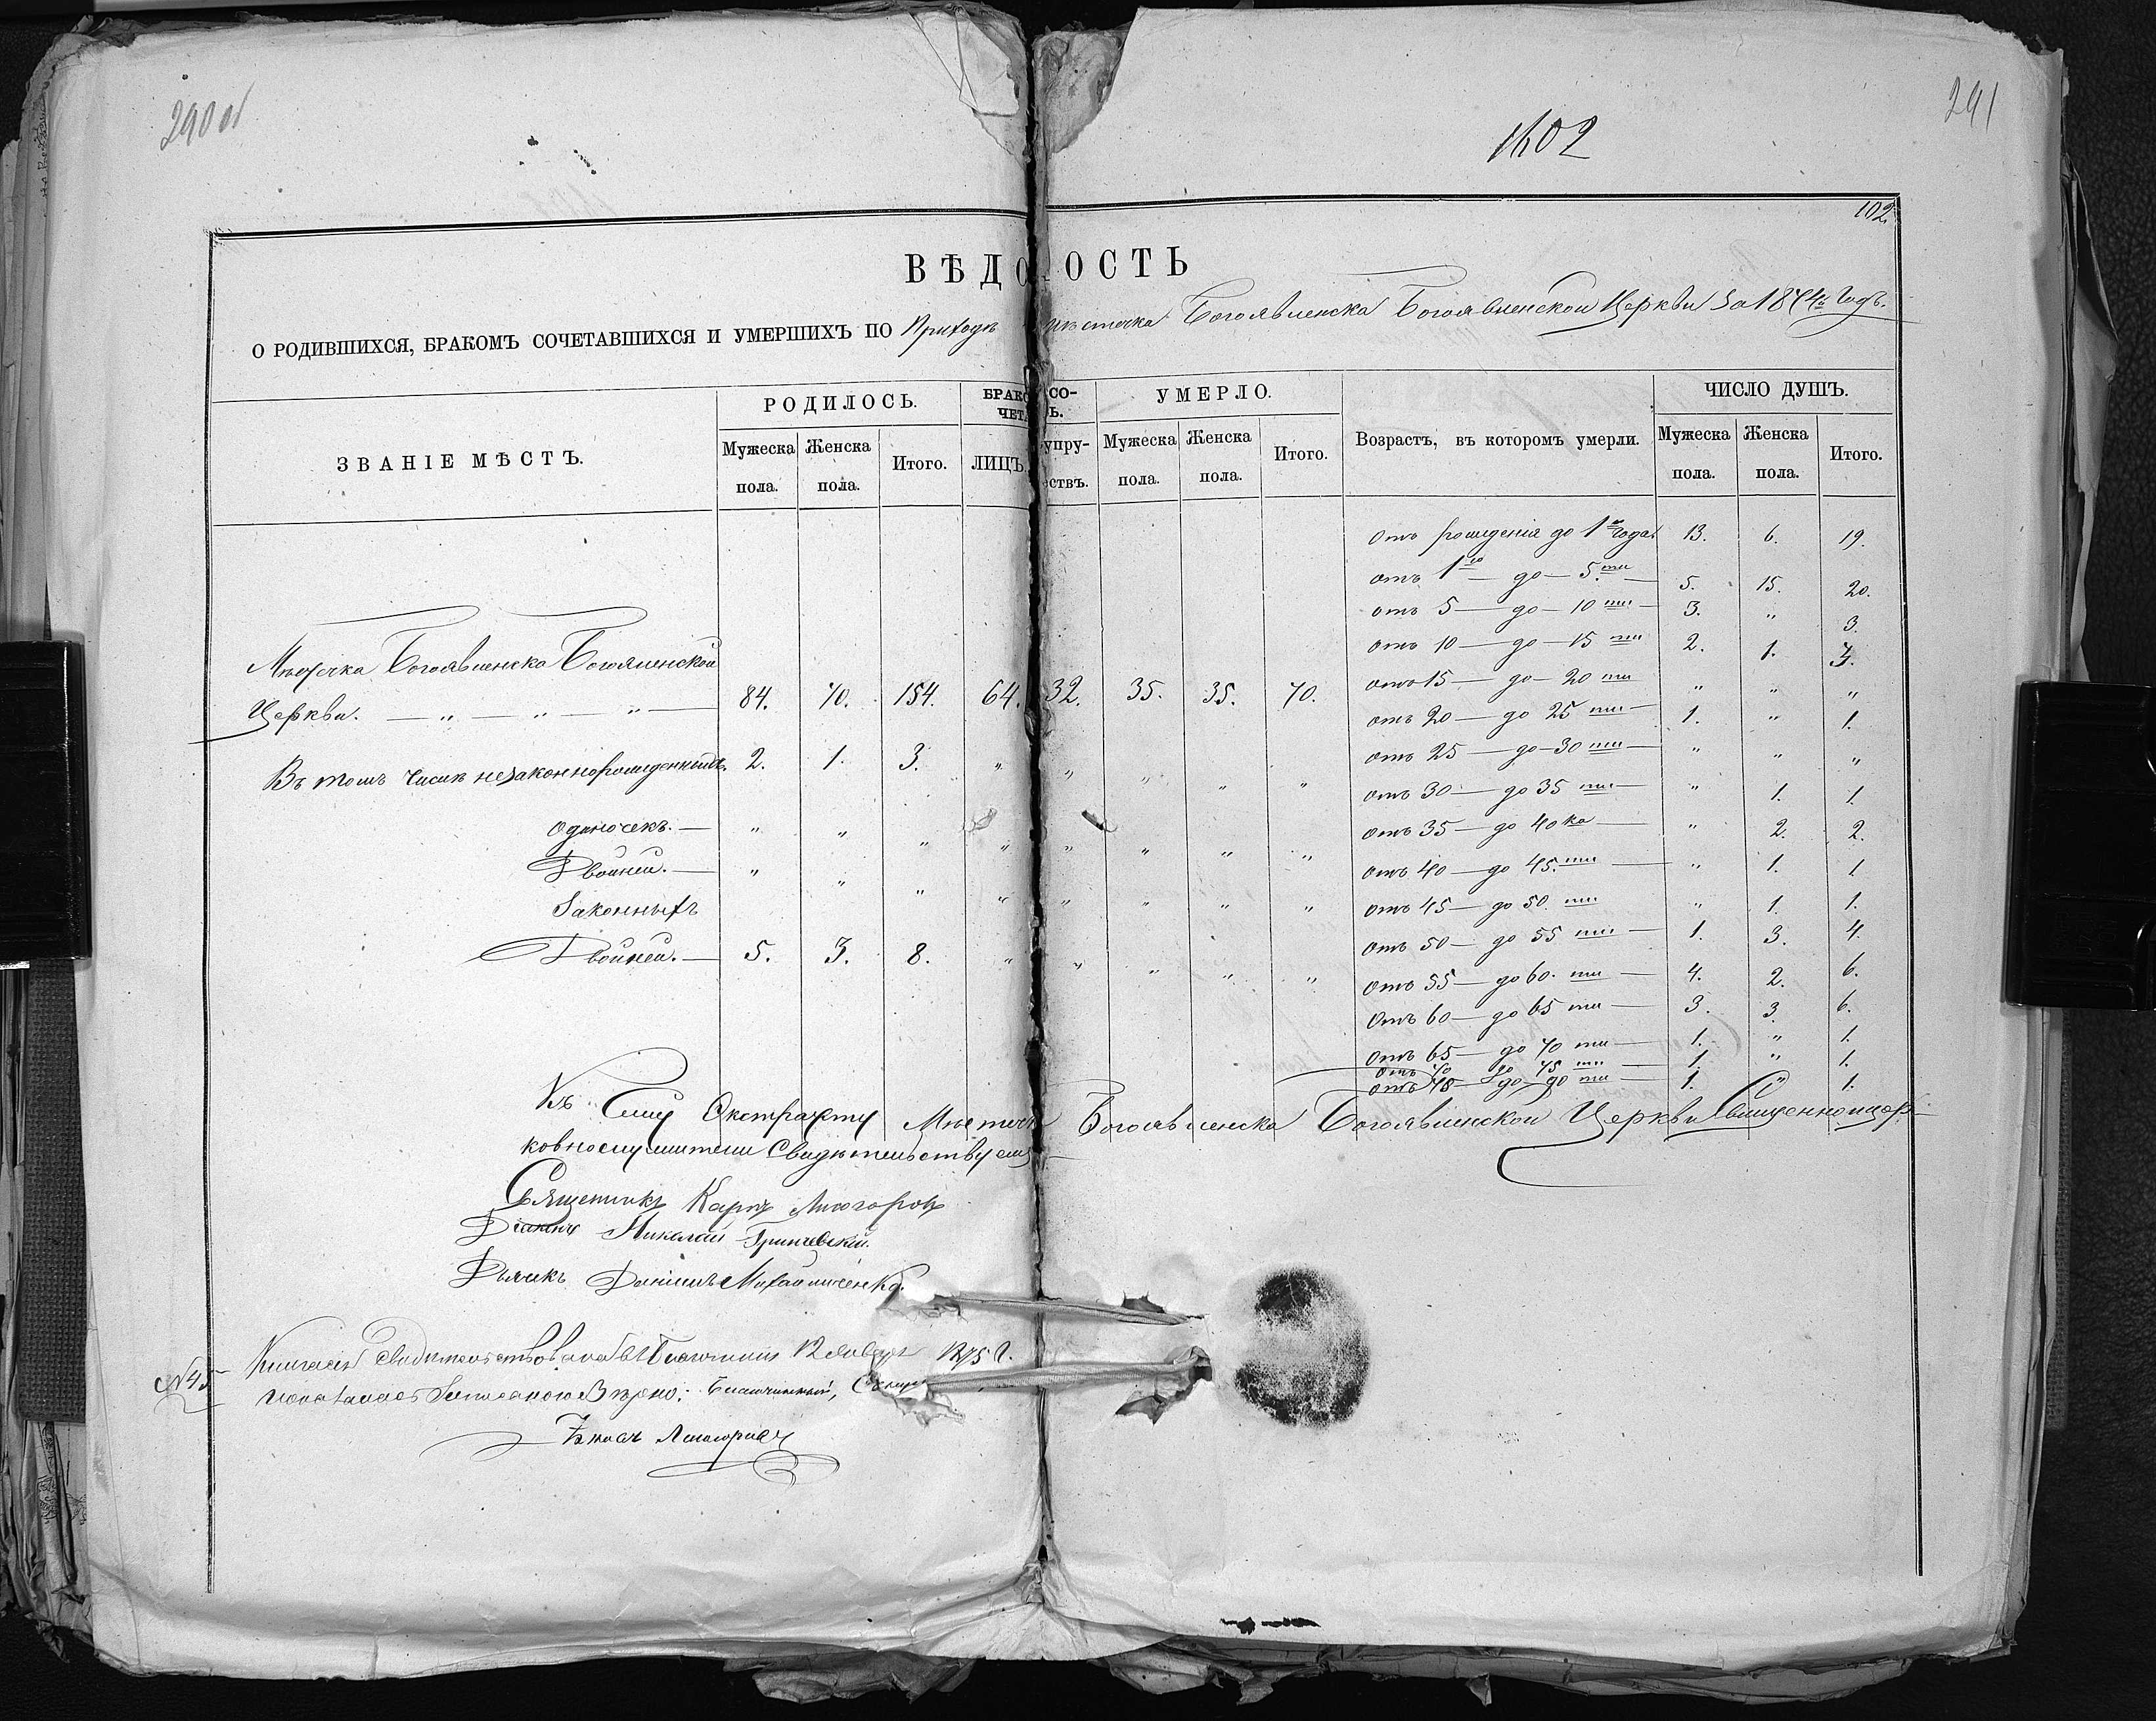 290 об
291
1602
102.
ВѢДОМОСТЬ
О РОДИВШИХСЯ, БРАКОМЪ СОЧЕТАВШИХСЯ И УМЕРШИХЪ ПО Приходу Мѣстечка Богоявленска Богоявленской Церкви За 1874й Годъ.
ЗВАНІЕ МѢСТЪ.
РОДИЛОСЬ.
БРАКО СО-
ЧЕТА Ь.
УМЕРЛО.
Возрастъ, въ которомъ умерли.
ЧИСЛО ДУШЪ.
Мужеска пола. Женска пола. Итого. ЛИЦЪ. упру- ствъ. Мужеска пола. Женска пола. Итого. Мужеска пола. Женска пола. Итого.
Мѣстечка Богоявленска Богоявленской
Церкви. — „ — „ — „ — 84. 70. 154. 64. 32. 35. 35. 70.
Въ томъ числѣ незаконнорожденныхъ. 2. 1. 3. „ „ „ „ „
одиночекъ. — „ „ „ „ „ „ „ „
Двойней. — „ „ „ „ „ „ „ „
Законныхъ
Двойней. — 5. 3. 8. „ „ „ „ „
отъ рожденія до 1го года 13. 6. 19.
отъ 1го — до — 5.ти — 5. 15. 20.
отъ 5 — до — 10 ти — 3. „ 3.
отъ 10 — до — 15 ти 2. 1. 3.
отъ 15 — до — 20 ти „ „ „
отъ 20 — до 25 ти — 1. „ 1.
отъ 25 — до — 30 ти — „ „ „
отъ 30 — до 35 ти — „ 1. 1.
отъ 35 — до 40 ка — „ 2. 2.
отъ 40 — до 45. ти — „ 1. 1
отъ 45 — до 50. ти „ 1. 1.
отъ 50 — до 55 ти — 1. 3. 4.
отъ 55 — до 60. ти — 4. 2. 6.
отъ 60 — до 65 ти — 3. 3. 6.
отъ 65 — до 70 ти — 1. „ 1.
отъ 70 до 75 ти — 1. „ 1.
отъ 75 — до 90 ти — 1. „ 1.
Къ Сему Экстракту Мѣстечка Богоявленска Богоявленской Церкви Священноцер-
ковнослужители Свидѣтельствуемъ
Священникъ Карпъ
Діаконъ Николай Гриневскій.
Дьячокъ Даніилъ Михайличенко.
№ 45
Книга сія свидѣтельствована 12 Января 1875 г.
Благочинный,